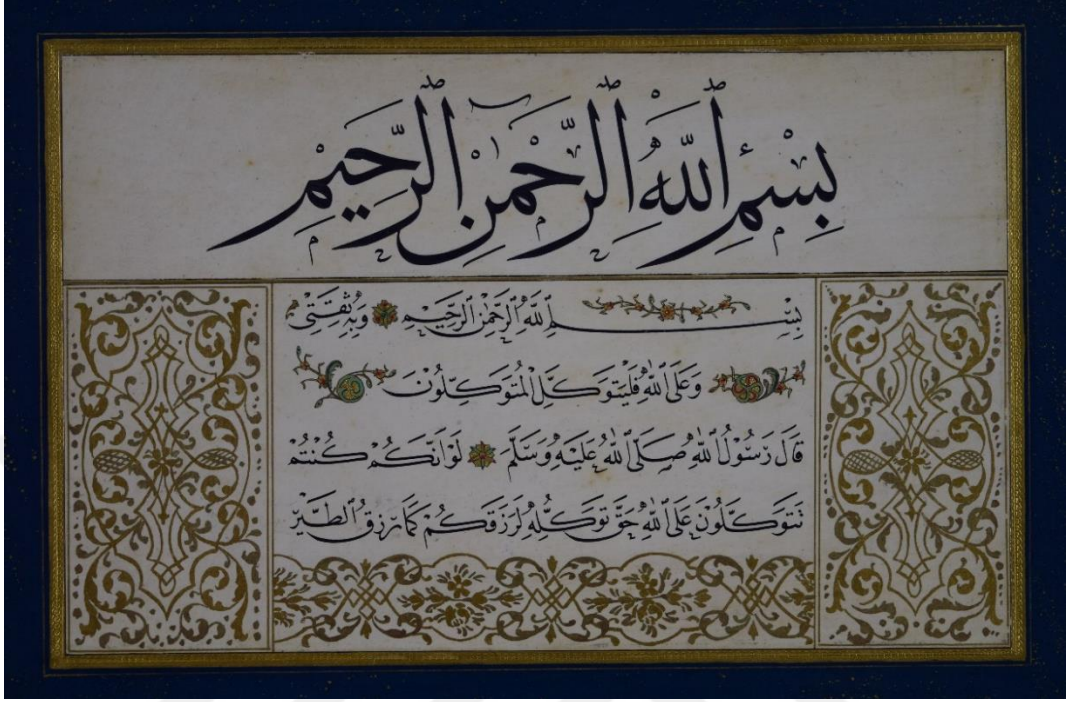 بِسْمِ ٱللّٰهِ ٱلرَّحْمٰنِ ٱلرَّحِيمِ
بِسْمِ ٱللّٰهِ ٱلرَّحْمٰنِ ٱلرَّحِيمِ وَبِهِ ثِقَتِى
وَعَلَى ٱللّٰهِ فَلْيَتَوَكَّلِ الْمُتَوَكِّلُونَ
قَالَ رَسُولُ ٱللّٰهِ صَلَّى ٱللّٰهُ عَلَيْهِ وَسَلَّمَ لَوْ اَنَّكُمْ كُنْتُمْ
تَتَوَكَّلُونَ عَلَى ٱللّٰهِ حَقَّ تَوَكُّلِهِ لَرَزَقَكُمْ كَمَا يَرْزُقُ ٱلطَّيْرَ